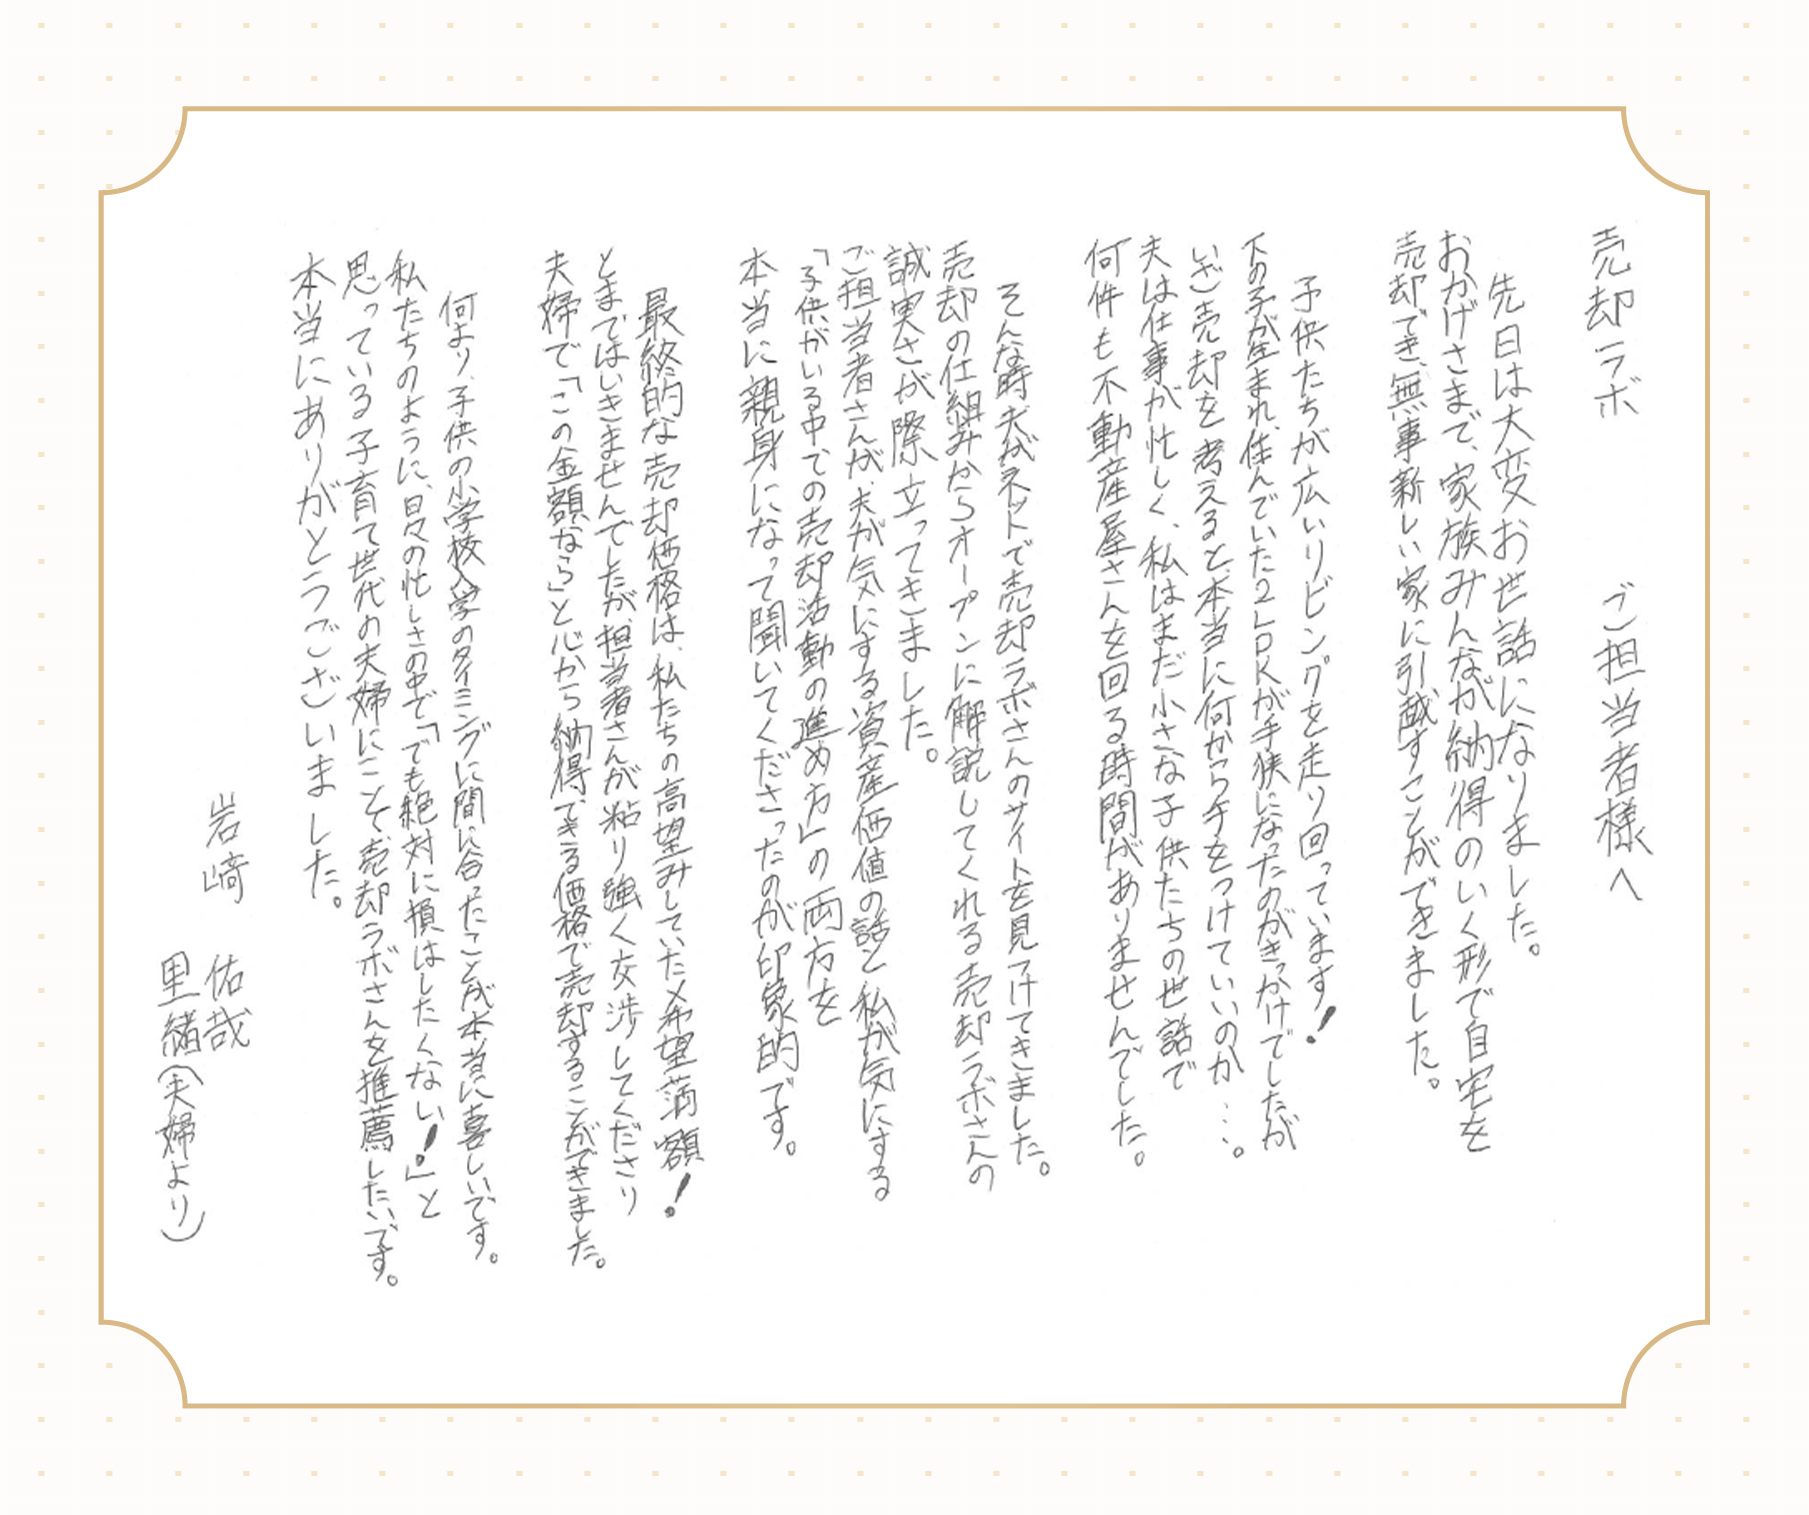 売却ラボ　ご担当者様へ
先日は大変お世話になりました。
おかげさまで、家族みんなが納得のいく形で自宅を
売却でき、無事新しい家に引越すことができました。
子供たちが広いリビングを走り回っています！
下の子が生まれ、住んでいた2LDKが手狭になったのがきっかけでしたが
いざ売却を考えると、本当に何から手をつけていいのか…。
夫は仕事が忙しく、私はまだ小さな子供たちの世話で
何件も不動産屋さんを回る時間がありませんでした。
そんな時夫がネットで売却ラボさんのサイトを見つけてきました。
売却の仕組みからオープンに解説してくれる売却ラボさんの
誠実さが際立ってきました。
ご担当者さんが、夫が気にする資産価値の話と私が気にする
「子供がいる中での売却活動の進め方」の両方を
本当に親身になって聞いてくださったのが印象的です。
最終的な売却価格は、私たちの高望みしていた〆希望満額！
とまではいきませんでしたが、担当者さんが粘り強く交渉してくださり
夫婦で「この金額なら」と心から納得できる価格で売却することができました。
何より、子供の小学校入学のタイミングに間に合ったことが本当に喜しいです。
私たちのように、日々の忙しさの中で「でも絶対に損はしたくない！」と
思っている子育て世代の夫婦にこそ、売却ラボさんを推薦したいです。
本当にありがとうございました。
岩﨑　佑哉
里緒（夫婦より）